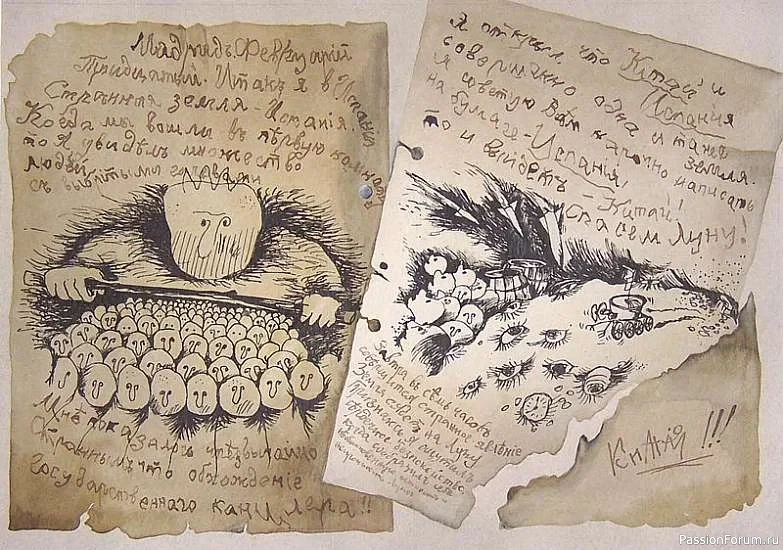 Мадридъ. Февруарій
Тридцатый. Итакъ я в Испаніи
Странная земля - Испанія.
Когда мы вошли въ первую комнату
то я увидѣлъ множество
людей
съ выбритыми головами
Мнѣ показалось чрезвычайно
страннымъ что обхождение
государственнаго канцлера!!
Я открыл, что Китай и
Испания
совершенно одна и таже земля.
я советую вам нарочно написать
на бумаге - Испанія,
то и выйдетъ - Китай!!
Спасем Луну!
Завтра въ семь часовъ
совершится странное явление
Земля сядет на Луну
Признаюсь я ощутилъ
сердечное безпокойство
когда вообразил себе
Китай!!!
PassionForum.ru